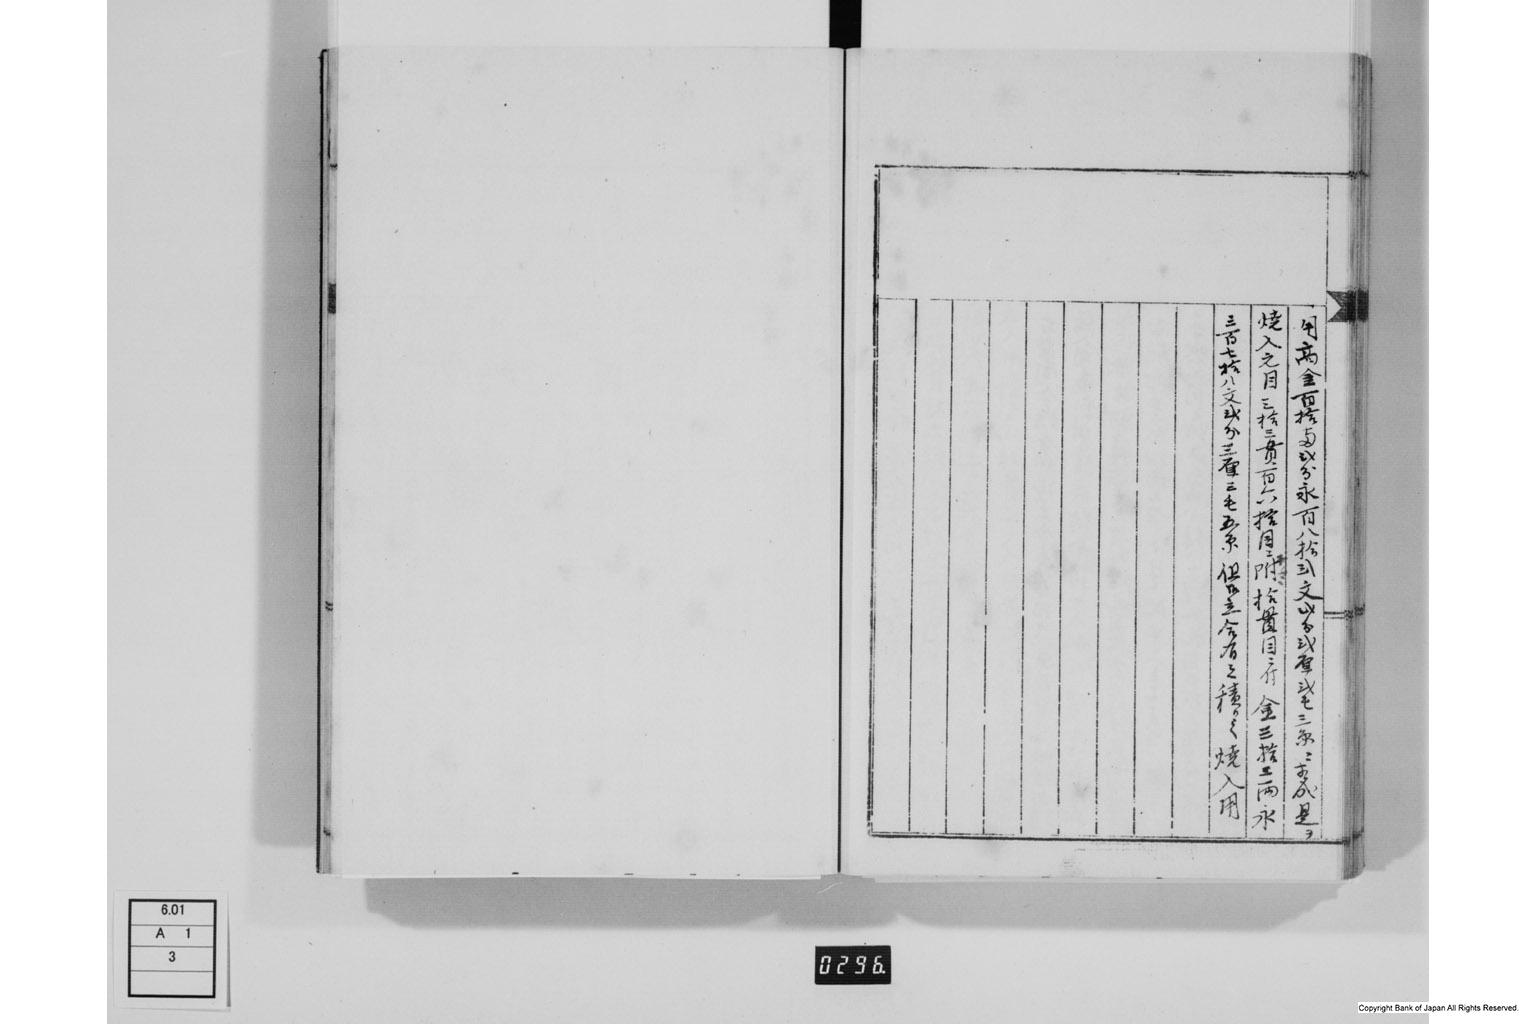 用高金百拾両弐分永百八拾弐文四分弐厘弐毛三糸ニ相成是ヲ
焼入元目三拾三貫百六拾目ニ附拾貫目ニ付金三拾三両永
三百七拾八文弐分三厘三毛五糸但立会有之積りを焼入用
6.01
A 1
3
0296.
Copyright Bank of Japan All Rights Reserved.